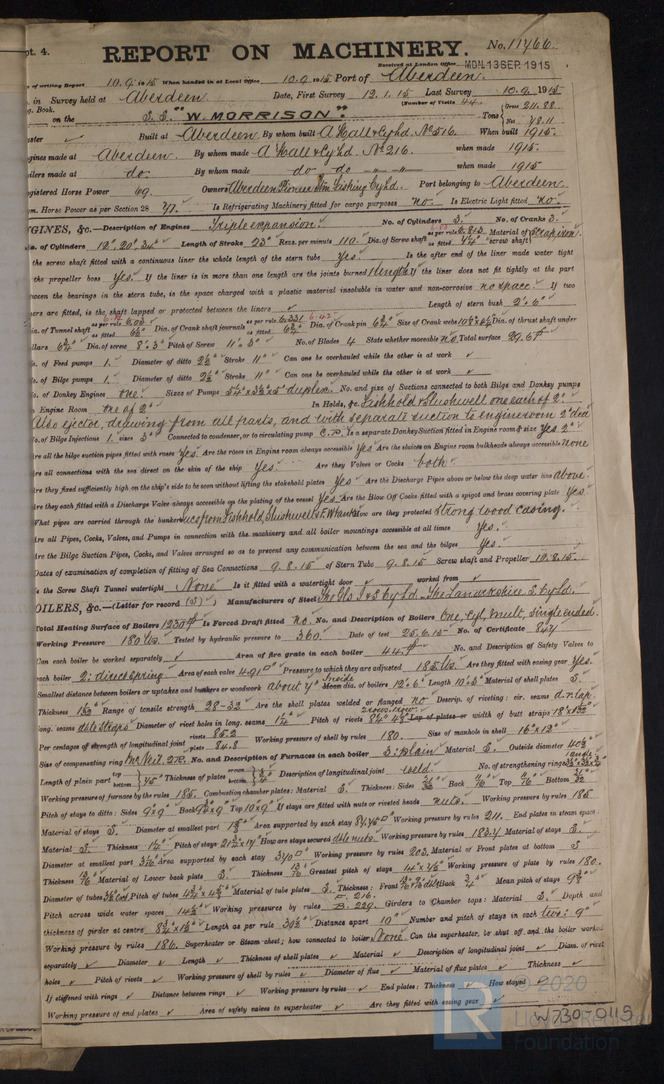 pt. 4.
REPORT ON MACHINERY. No. 11466
Received at London Office MON. 13 SEP. 1915
of writing Report 10.9.1915 When handed in at Local Office 10.9.1915 Port of Aberdeen.
in Survey held at Aberdeen Date, First Survey 12.1.15 Last Survey 10.9.1915
Book. (Number of Visits 44.)
on the S.S. "W. MORRISON". Tons Gross 211.88 Net 78.11
Built at Aberdeen By whom built A Hall & Co Ld. No 516. When built 1915.
Engines made at Aberdeen. By whom made A Hall & Co Ld. No. 216. when made 1915.
Boilers made at do. By whom made do- do when made 1915
Registered Horse Power 69. Owners Aberdeen Pioneer Stm Fishing Co Ld. Port belonging to Aberdeen
Nom. Horse Power as per Section 28 47. Is Refrigerating Machinery fitted for cargo purposes no. Is Electric Light fitted no.
ENGINES, &c.—Description of Engines Triple expansion. No. of Cylinders 3. No. of Cranks 3.
Dia. of Cylinders 12", 20", 34" Length of Stroke 23" Revs. per minute 110. Dia. of Screw shaft as per rule 6.813 as fitted Material of screw shaft
the screw shaft fitted with a continuous liner the whole length of the stern tube Yes. Is the after end of the liner made water tight
the propeller boss Yes. If the liner is in more than one length are the joints burned 1 length If the liner does not fit tightly at the part
between the bearings in the stern tube, is the space charged with a plastic material insoluble in water and non-corrosive no space. If two
liners are fitted, is the shaft lapped or protected between the liners ✓ Length of stern bush 2' 6"
Dia. of Tunnel shaft as per rule 6.03 as fitted Dia. of Crank shaft journals as per rule 6.331 as fitted Dia. of Crank pin 6¾" Size of Crank webs Dia. of thrust shaft under
collars 6¾" Dia. of screw 8' 3" Pitch of Screw 11' 3" No. of Blades 4 State whether moveable no Total surface 29.6
No. of Feed pumps 1. Diameter of ditto 2½" Stroke 11" Can one be overhauled while the other is at work ✓
No. of Bilge pumps 1. Diameter of ditto 2½" Stroke 11" Can one be overhauled while the other is at work ✓
No. of Donkey Engines One. Sizes of Pumps 5¼" x 3½" x 5" duplex. No. and size of Suctions connected to both Bilge and Donkey pumps
Engine Room one of 2". In Holds, &c. Fishhold & Slushwell one each of 2".
Also ejector, drawing from all parts, and with separate suction to engineroom 2" dia
No. of Bilge Injections 1 sizes 3" Connected to condenser, or to circulating pump C.P. Is a separate Donkey Suction fitted in Engine room & size Yes 2"
Are all the bilge suction pipes fitted with roses Yes. Are the roses in Engine room always accessible Yes Are the sluices on Engine room bulkheads always accessible none
Are all connections with the sea direct on the skin of the ship Yes. Are they Valves or Cocks both.
Are they fixed sufficiently high on the ship's side to be seen without lifting the stokehold plates Yes Are the Discharge Pipes above or below the deep water line above.
Are they each fitted with a Discharge Valve always accessible on the plating of the vessel Yes Are the Blow Off Cocks fitted with a spigot and brass covering plate Yes
What pipes are carried through the bunkers Sucs from Fishhold, Slushwell & F W tanks How are they protected Strong wood casing.
Are all Pipes, Cocks, Valves, and Pumps in connection with the machinery and all boiler mountings accessible at all times Yes.
Are the Bilge Suction Pipes, Cocks, and Valves arranged so as to prevent any communication between the sea and the bilges Yes.
Dates of examination of completion of fitting of Sea Connections 9.8.15 of Stern Tube 9.8.15 Screw shaft and Propeller 10.8.15.
Is the Screw Shaft Tunnel watertight None Is it fitted with a watertight door ✓ worked from ✓
BOILERS, &c.—(Letter for record (S)) Manufacturers of Steel The Gls I & S Co Ld. The Lanarkshire S. Co Ld.
Total Heating Surface of Boilers 1230 Is Forced Draft fitted no. No. and Description of Boilers One, Cyl, mult, single ended.
Working Pressure 180 lbs. Tested by hydraulic pressure to 360. Date of test 25.6.15 No. of Certificate 844
Can each boiler be worked separately ✓ Area of fire grate in each boiler 44 No. and Description of Safety Valves to
each boiler 2: direct spring Area of each valve 4.91 Pressure to which they are adjusted 185 lbs. Are they fitted with easing gear Yes.
Smallest distance between boilers or uptakes and bunkers or woodwork about 4" Inside Mean dia. of boilers 12' 6" Length 10' 3" Material of shell plates S.
Thickness Range of tensile strength 28-32 Are the shell plates welded or flanged no Descrip. of riveting: cir. seams d.r. lap.
long. seams dble straps Diameter of rivet holes in long. seams 1¼" Pitch of rivets Lap of plates or width of butt straps
Per centages of strength of longitudinal joint rivets 86.2 plates 84.8 Working pressure of shell by rules 180. Size of manhole in shell 16" x 12"
Size of compensating ring McNeil 2R. No. and Description of Furnaces in each boiler 3: plain Material S. Outside diameter 40½"
Length of plain part top bottom 75" Thickness of plates crown bottom ¾" Description of longitudinal joint weld. No. of strengthening rings
Working pressure of furnace by the rules 185. Combustion chamber plates: Material S. Thickness: Sides Back Top Bottom
Pitch of stays to ditto: Sides 9" x 9" Back Top 10" x 9" If stays are fitted with nuts or riveted heads nuts. Working pressure by rules 185
Material of stays S. Diameter at smallest part Area supported by each stay Working pressure by rules 211. End plates in steam space:
Material S. Thickness Pitch of stays How are stays secured dble nuts. Working pressure by rules 183.4 Material of stays S.
Diameter at smallest part Area supported by each stay 340 Working pressure by rules 203. Material of Front plates at bottom S
Thickness Material of Lower back plate S. Thickness Greatest pitch of stays Working pressure of plate by rules 180.
Diameter of tubes Pitch of tubes Material of tube plates S. Thickness: Front Back ¾" Mean pitch of stays
Pitch across wide water spaces 14½" Working pressures by rules F. 216. B. 229. Girders to Chamber tops: Material S. Depth and
thickness of girder at centre Length as per rule 30½" Distance apart 10" Number and pitch of stays in each two: 9"
Working pressure by rules 186. Superheater or Steam chest; how connected to boiler None Can the superheater be shut off and the boiler worked
separately ✓ Diameter ✓ Length ✓ Thickness of shell plates ✓ Material ✓ Description of longitudinal joint ✓ Diam. of rivet
holes ✓ Pitch of rivets ✓ Working pressure of shell by rules ✓ Diameter of flue ✓ Material of flue plates ✓ Thickness ✓
If stiffened with rings ✓ Distance between rings ✓ Working pressure by rules ✓ End plates: Thickness ✓ How stayed ✓
Working pressure of end plates ✓ Area of safety valves to superheater ✓ Are they fitted with easing gear ✓
LR © 2020
Lloyd's Register
Foundation
W730-0115